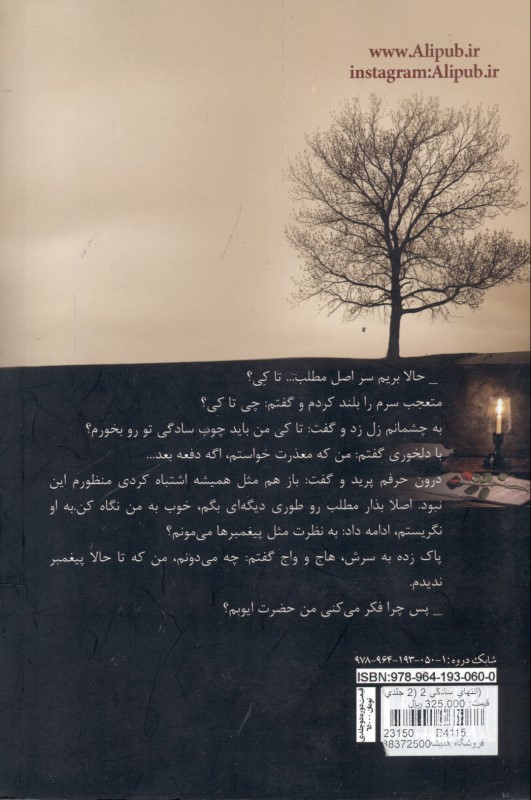 www.Alipub.ir
instagram:Alipub.ir
_ حالا بریم سر اصل مطلب... تا کِی؟
متعجب سرم را بلند کردم و گفتم: چی تا کی؟
به چشمانم زل زد و گفت: تا کی من باید چوب سادگی تو رو بخورم؟
با دلخوری گفتم: من که معذرت خواستم، اگه دفعه بعد...
درون حرفم پرید و گفت: باز هم مثل همیشه اشتباه کردی منظورم این
نبود. اصلا بذار مطلب رو طوری دیگه‌ای بگم، خوب به من نگاه کن.به او
نگریستم، ادامه داد: به نظرت مثل پیغمبرها می‌مونم؟
پاک زده به سرش، هاج و واج گفتم: چه می‌دونم، من که تا حالا پیغمبر
ندیدم.
_ پس چرا فکر می‌کنی من حضرت ایوبم؟
شابک دروه : ۱-۰۵۰-۱۹۳-۹۶۴-۹۷۸
ISBN:978-964-193-060-0
(انتهای سادگی 2 (2 جلدی
قیمت: 325,000 ریال
23150
B4115
88372500 فروشگاه همیشه
قیمت دوره دو جلدی